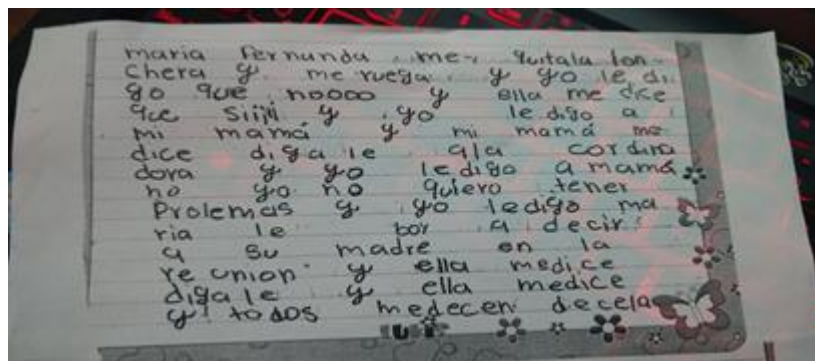 maria fernanda me quitala lon-
chera y me ruega y yo le di
go que nooco y ella me dice
que siiii y yo le digo a
mi mamá y mi mamá me
dice digale ala cordina
dora y yo ledigo a mamá
no yo no quiero tener
Prolemas y yo ledigo ma
ria le boy a decir
a su madre en la
reunion y ella medice
digale y ella medice
y todos medecen decela